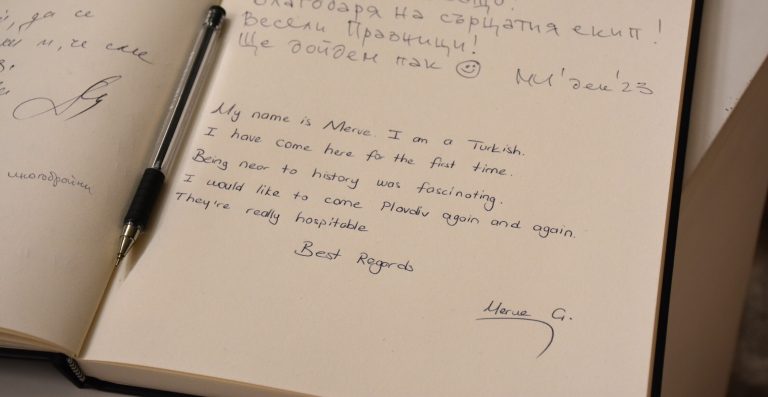 , да се
м, че сме
многобройни
Благодаря на сърцатия екип!
Весели Празници!
Ще дойдем пак ☺
МИ 'дек '23
My name is Merve. I am a Turkish.
I have come here for the first time.
Being near to history was fascinating.
I would like to come Plovdiv again and again.
They're really hospitable
Best Regards
Merve G.